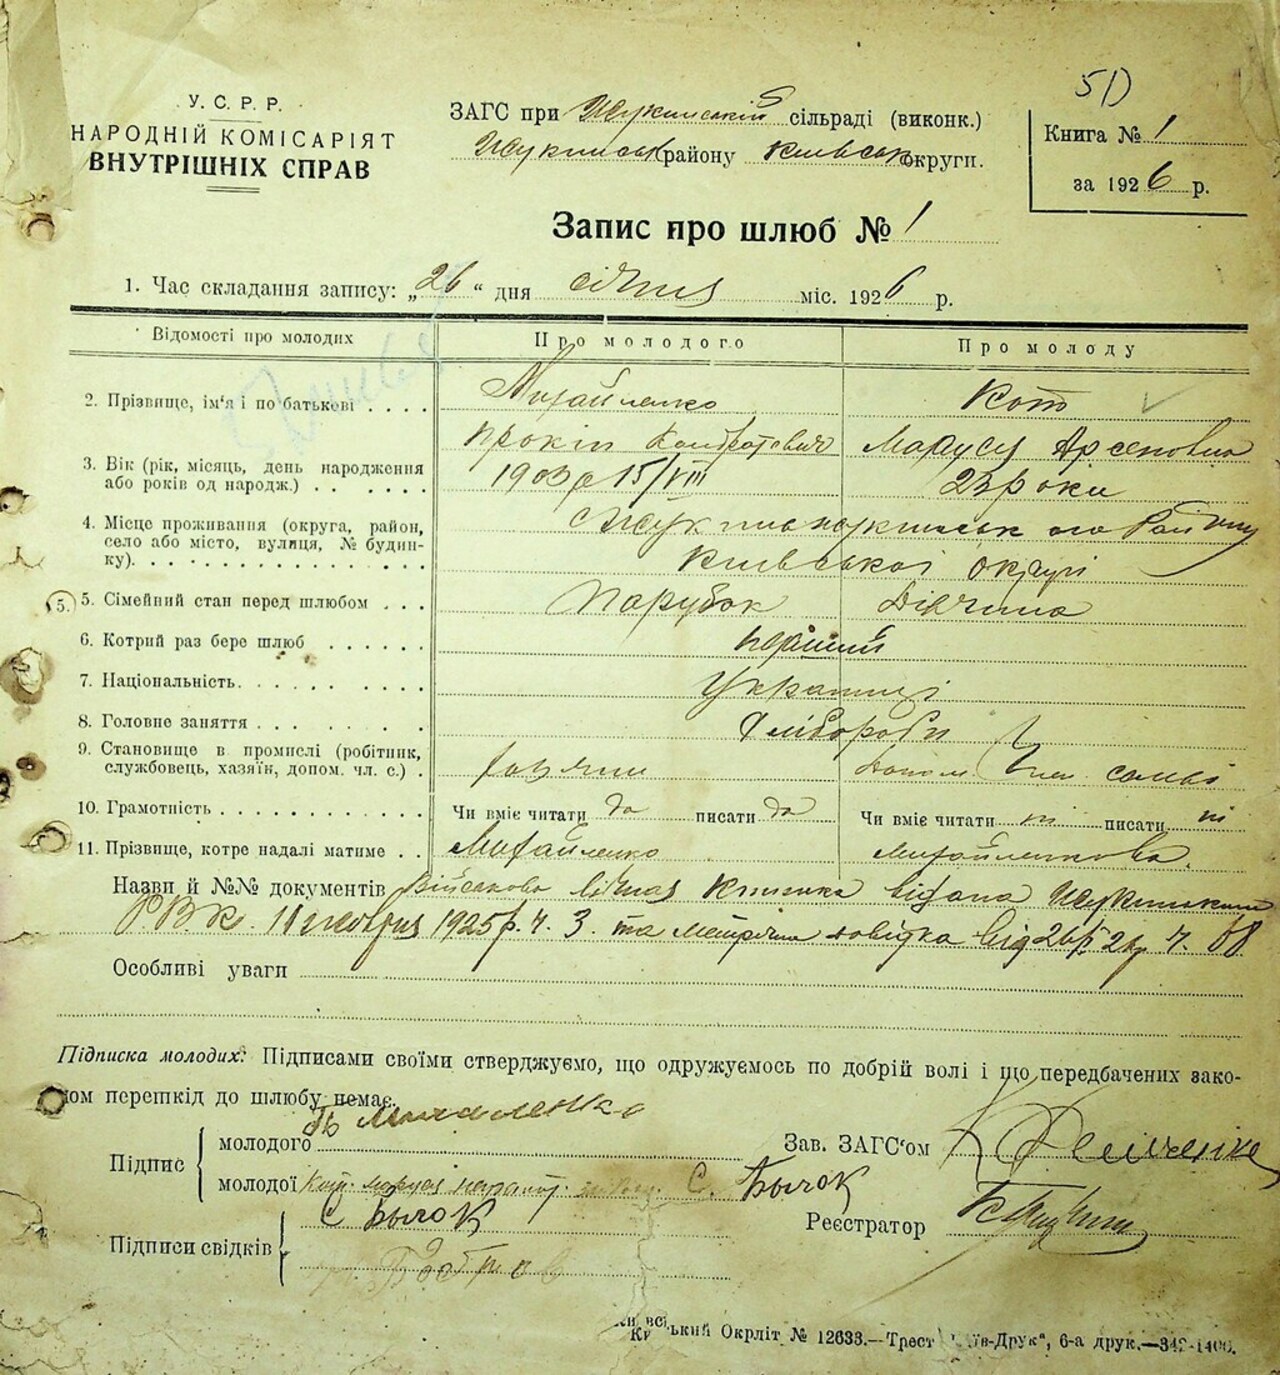 51)
У. С. Р. Р.
НАРОДНІЙ КОМІСАРІЯТ
ВНУТРІШНІХ СПРАВ
ЗАГС при сільраді (виконк.)
району Київськ округи.
Книга № 1
за 1926 р.
Запис про шлюб № 1
1. Час складання запису: „26“ дня січня міс. 1926 р.
Відомості про молодих Про молодого Про молоду
2. Прізвище, ім'я і по батькові . . . . Михайленко Кот
Прокіп Кондратович Маруся Арсеновна
3. Вік (рік, місяць, день народження
або років од народж.) . . . . . . 1903 р 15/VIII 23 роки
4. Місце проживання (округа, район,
село або місто, вулиця, № будин-
ку). . . . . . . . . . . . . . . . Київської округи
5. 5. Сімейний стан перед шлюбом . . . Парубок Дівчина
6. Котрий раз бере шлюб . . . . . . перший
7. Національність. . . . . . . . . . Українці
8. Головне заняття . . . . . . . . Хлібороби
9. Становище в промислі (робітник,
службовець, хазяїн, допом. чл. с.) . хазяїн допом. член сомьі
10. Грамотність . . . . . . . . . . . Чи вміє читати да писати да Чи вміє читати ні писати ні
11. Прізвище, котре надалі матиме . . Михайленко Михайленкова.
Назви й №№ документів Військова книжка видана
Р.В.К. 11 1925 р. ч. 3. та довідка від 26/ ч. 68
Особливі уваги
Підписка молодих: Підписами своїми стверджуємо, що одружуємось по добрій волі і що передбачених зако-
ном перешкід до шлюбу немає.
Підпис
молодого Михаленко
Зав. ЗАГС'ом
молодої Кот. Маруся С. Бычок
Реєстратор
Підписи свідків
С Бычок
Київський Окрліт № 12633.—Трест „Київ-Друк“, 6-а друк.—342-1400.